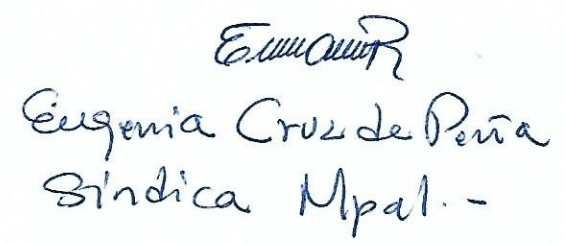 Eugenia Cruz de Peña
Síndica Mpal.-